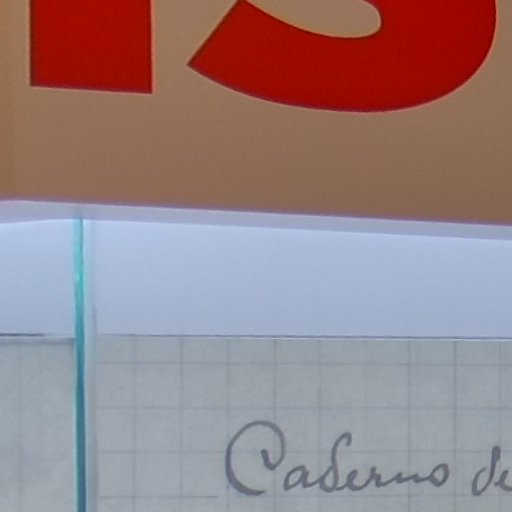 Caderno de